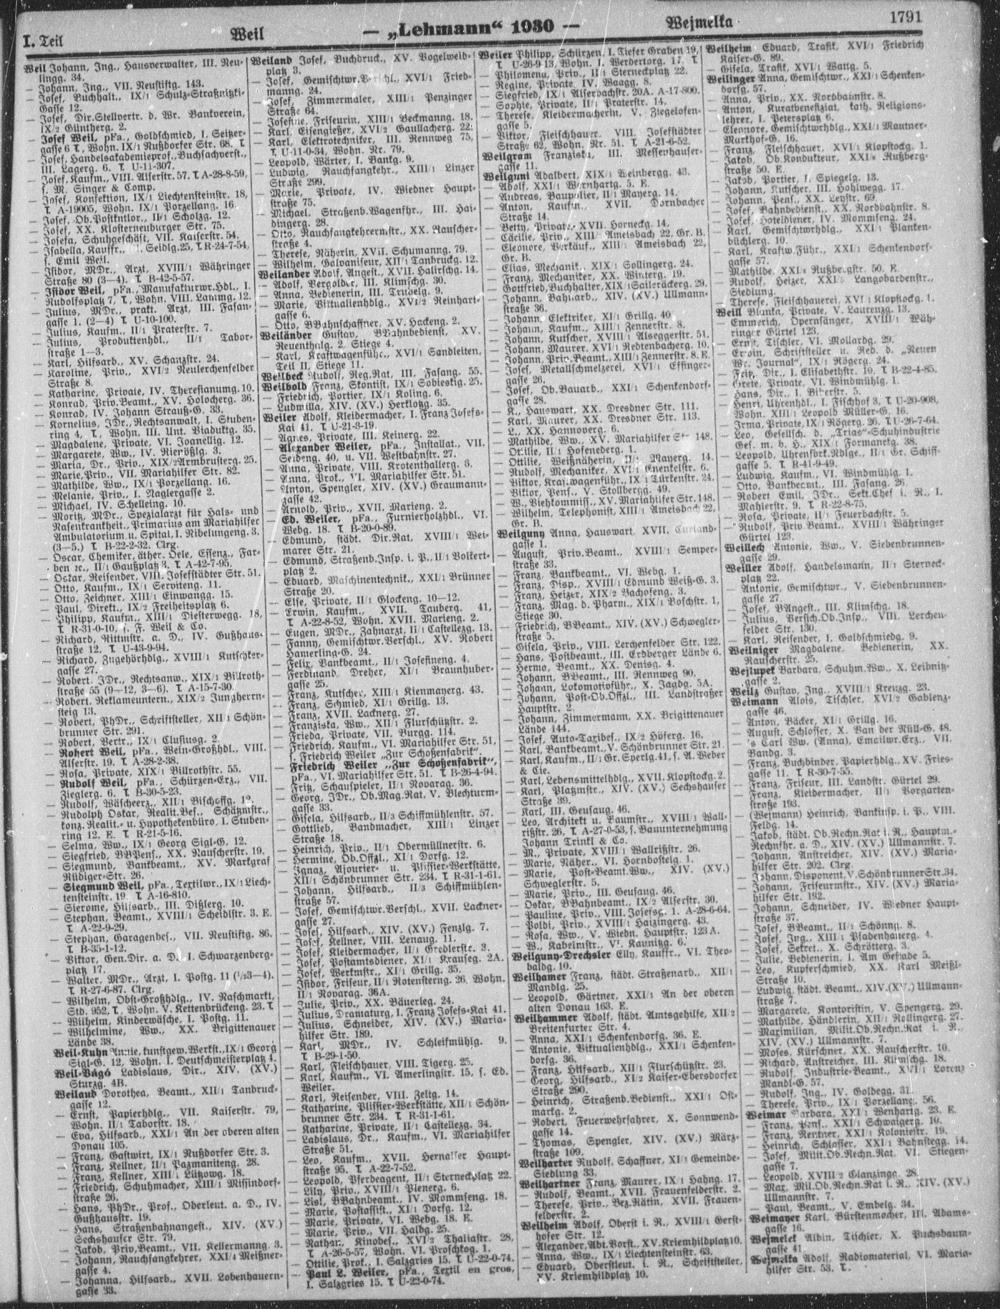 I. Teil
Weil
— „Lehmann“ 1930 —
Wejmelka
1791
Weil Johann, Ing., Hausverwalter, III. Neulingg. 34.
— Johann, Ing., VII. Neustiftg. 143.
— Josef, Buchhalt., IX/1 Schulz-Straßnitzki-
Gasse 12.
— Josef, Dir.Stellvertr. d. Wr. Bankverein,
IX/2 Güntherg. 2.
Josef Weil, pFa., Goldschmied, I. Seitzer-
gasse 6 T, Wohn. IX/1 Nußdorfer Str. 68. T
— Josef, Handelsakademieprof., Buchsachverst.,
III. Lagerg. 6. T U-11-307.
— Josef, Kaufm., VIII. Alserstr. 57. T A-28-8-59,
s. M. Singer & Comp.
— Josef, Konfektion, IX/1 Liechtensteinstr. 18,
T A-19005, Wohn. IX/1 Porzellang. 16.
— Josef, Ob.Postkontor., II/1 Scholzg. 12.
— Josef, XX. Klosterneuburger Str. 75.
— Josefa, Schuhgeschäft, VII. Kaiserstr. 54.
— Isabella, Kaufm., Seidlg. 25, T R-24-7-54,
s. Emil Weil.
— Isidor, MDr., Arzt, XVIII/1 Währinger
Straße 80 (3—4). T B-42-5-57.
Isidor Weil, pFa., Manufakturwr.Hdl., I.
Rudolfsplatz 7, T, Wohn. VIII. Lammg. 12.
— Julius, MDr., prakt. Arzt, III. Fasan-
gasse 1. (2—4) T U-10-100.
— Julius, Kaufm., II/1 Praterstr. 7.
— Julius, Produktenhdl., II/1 Tabor-
straße 1—3.
— Karl, Hilfsarb., XV. Schanzstr. 24.
— Karoline, Priv., XVI/2 Neulerchenfelder
Straße 8.
— Katharine, Private, IV. Theresianumg. 10.
— Konrad, Priv.Beamt., XV. Holocherg. 36.
— Konrad, IV. Johann Strauß-G. 33.
— Kornelius, JDr., Rechtsanwalt, I. Stuben-
ring 4, T, Wohn. III. Unt. Viaduktg. 35.
— Magdalene, Private, VI. Joanellig. 12.
— Margarete, Ww., IV. Rienößlg. 3.
— Maria, Dr., Priv., XIX/2 Armbrusterg. 25.
— Marie, Priv., VII. Mariahilfer Str. 82.
— Mathilde, Ww., IX/1 Porzellang. 16.
— Melanie, Priv., I. Naglergasse 2.
— Michael, IV. Schelleing. 10.
— Moritz, MDr., Spezialarzt für Hals- und
Nasenkrankheit., Primarius am Mariahilfer
Ambulatorium u. Spital, I. Nibelungeng. 3.
(3—5.) T B-22-2-32. Clrg.
— Oscar, Chemiker, äther. Oele, Essenz., Far-
ben etc., II/1 Gaußplatz 3. T A-42-7-95.
— Oskar, Reisender, VIII. Josefstädter Str. 51.
— Otto, Kaufm., IX/1 Serviteng. 11.
— Otto, Zeichner, XIII/1 Einwangg. 15.
— Paul, Direkt., IX/2 Freiheitsplatz 6.
— Philipp, Kaufm., XIII/1 Diesterwegg. 18,
T R-31-0-10, s. F. Weil & Co.
— Richard, Rittmstr. a. D., IV. Gußhaus-
straße 12. T U-43-9-94.
— Richard, Zugehörhdlg., XVIII/1 Kutschker-
gasse 27.
— Robert, JDr., Rechtsanw., IX/1 Billroth-
straße 55 (9—12, 3—6). T A-15-7-30.
— Robert, Reklameuntern., XIX/2 Junghern-
steig 13.
— Robert, PhDr., Schriftsteller, XII/1 Schön-
brunner Str. 291.
— Robert, Vertr., IX/1 Clusiusg. 2.
Robert Weil, pFa., Wein-Großhdl., VIII.
Alserstr. 19. T A-28-2-38.
— Rosa, Private, IX/1 Billrothstr. 55.
Rudolf Weil, pFa., Schürzen-Erz., VII.
Zieglerg. 6. T B-30-5-23.
— Rudolf, Wäscheerz., XII/1 Bischoffg. 12.
— Rudolph Oskar, Realit.Bes., Schätzmstr.,
konz. Realit.- u. Hypothekenbüro, I. Stuben-
ring 12. T R-21-5-16.
— Selma, Ww., IX/1 Georg Sigl-G. 12.
— Siegfried, BBPens., XX. Rauscherstr. 19.
— Siegmund, Bankbeamt., XV. Markgraf
Rüdiger-Str. 26.
Siegmund Weil, pFa., Textilwr., IX/1 Liech-
tensteinstr. 19 T A-16-810.
— Sierome, Hilfsarb., III. Dißlerg. 10.
— Stephan, Beamt., XVIII/1 Scheiblstr. 3. E.
T A-22-9-29.
— Stephan, Garagenbes., VII. Neustiftg. 86.
T B-35-1-12.
— Viktor, Gen.Dir. a. D., I. Schwarzenberg-
platz 17.
— Walter, MDr., Arzt, I. Postg. 11 (1/23—4).
T R-27-6-87. Clrg.
— Wilhelm, Obst-Großhdlg., IV. Naschmarkt,
Std. 952, T, Wohn. V. Kettenbrückeng. 23. T
— Wilhelm, Kinderwäsche, I. Postg. 11.
— Wilhelmine, Ww., XX. Brigittenauer
Lände 38.
Weil-Kuhn Annie, kunstgew. Werkst., IX/1 Georg
Sigl-G. 12, Wohn. I. Deutschmeisterplatz 4.
Weil-Vágó Ladislaus, Dir., XIV. (XV.)
Sturzg. 4B.
Weiland Dorothea, Beamt., XII/1 Tanbruck-
gasse 12.
— Ernst, Papierhdlg., VII. Kaiserstr. 79,
Wohn. II/1 Taborstr. 18.
— Eva, Hilfsarb., XXI/1 An der oberen alten
Donau 105.
— Franz, Gastwirt, IX/1 Nußdorfer Str. 3.
— Franz, Kellner, II/1 Pazmaniteng. 28.
— Franz, Kellner, XIII/1 Lützowg. 18.
— Friedrich, Schuhmacher, XIII/1 Missindorf-
straße 26.
— Hans, PhDr., Prof., Oberleut. a. D., IV.
Gußhausstr. 19.
— Hans, Straßenbahnangest., XIV. (XV.)
Sechshauser Str. 79.
— Jakob, Priv.Beamt., VII. Kellermanng. 3.
— Johann, Rauchfangkehrer, XXI/1 Meißner-
gasse 4.
— Johanna, Hilfsarb., XVII. Lobenhauern-
gasse 33.
Weiland Josef, Buchdruck., XV. Vogelweid-
platz 3.
— Josef, Gemischtwr.Verschl., XVI/1 Fried-
manng. 24.
— Josef, Zimmermaler, XIII/1 Penzinger
Straße 64.
— Josefine, Friseurin, XIII/1 Beckmanng. 18.
— Karl, Eisengießer, XVI/2 Gaullacherg. 22.
— Karl, Elektrotechniker, III. Rennweg 75,
T U-11-0-34, Wohn. Nr. 79.
— Leopold, Wärter, I. Bankg. 9.
— Ludwig, Rauchfangkehr., XIII/1 Linzer
Straße 299.
— Marie, Private, IV. Wiedner Haupt-
straße 75.
— Michael, Straßenb.Wagenfhr., III. Hai-
dingerg. 28.
— Otto, Rauchfangkehrermstr., XX. Rauscher-
straße 4.
— Therese, Näherin, XVII. Schumanng. 79.
— Wilhelm, Galvaniseur, XII/1 Tanbruckg. 12.
Weilander Adolf, Angest., XVII. Halirschg. 14.
— Adolf, Vergolder, III. Klimschg. 30.
— Anna, Bedienerin, III. Trubelg. 9.
— Marie, Viktualienhdlg., XVI/2 Reinhart-
gasse 6.
— Otto, BBahnschaffner, XV. Hackeng. 2.
Weiländer Gustav, BBahnbedienst., XV.
Neuenthulg. 2, Stiege 4.
— Karl, Kraftwagenführ., XVI/1 Sandleiten,
Teil II, Stiege 11.
Weilbeck Rudolf, Reg.Rat, III. Fasang. 55.
Weilbold Franz, Kontist, IX/1 Sobieskig. 25.
— Friedrich, Portier, IX/1 Koling. 6.
— Ludmilla, XIV. (XV.) Herklotzg. 35.
Weiler Adolf, Kleidermacher, I. Franz Josefs-
Kai 41. T U-21-3-19.
— Agnes, Private, III. Keinerg. 22.
Alexander Weiler, pFa., Justallat., VII.
Seideng. 40, u. VII. Westbahnstr. 27.
— Anna, Private, VIII. Krotenthallerg. 3.
— Anna, Prot., VI. Mariahilfer Str. 51.
— Anton, Spengler, XIV. (XV.) Graumann-
gasse 42.
— Arnold, Priv., XVII. Marieng. 2.
Ed. Weiler, pFa., Furnierholzhdl., VI.
Webg. 18. T B-20-0-89.
— Edmund, städt. Dir.Rat, XVIII/1 Wei-
marer Str. 21.
— Edmund, Straßenb.Insp. i. P., II/1 Volkert-
platz 2.
— Eduard, Maschinentechnik., XXI/1 Brünner
Straße 20.
— Else, Private, II/1 Glockeng. 10—12.
— Erwin, Kaufm., XVII. Tauberg. 41,
T A-22-8-52, Wohn. XVII. Marieng. 2.
— Eugen, MDr., Zahnarzt, II/1 Castellezg. 13.
— Fanny, Gemischtwr.Verschl., XV. Robert
Hamerling-G. 24.
— Felix, Bankbeamt., II/1 Josefineng. 4.
— Ferdinand, Dreher, XI/1 Braunhuber-
gasse 25.
— Franz, Kutscher, XIII/1 Kienmayerg. 43.
— Franz, Schmied, XI/1 Grillg. 13.
— Franz, XVII. Lacknerg. 27.
— Franziska, Ww., XII/1 Flurschützstr. 2.
— Frieda, Private, VII. Burgg. 114.
— Friedrich, Kaufm., VI. Mariahilfer Str. 51,
s. Friedrich Weiler „Zur Schoßenfabrik“.
Friedrich Weiler „Zur Schoßenfabrik“,
pFa., VI. Mariahilfer Str. 51. T B-26-4-94.
— Fritz, Schauspieler, II/1 Novarag. 36.
— Georg, JDr., Ob.Mag.Rat, V. Blechturm-
gasse 33.
— Gisela, Hilfsarb., II/3 Schiffmühlenstr. 57.
— Gottlieb, Bandmacher, XIII/1 Linzer
Straße 18.
— Heinrich, Priv., II/1 Obermüllnerstr. 6.
— Hermine, Ob.Offzl., XI/1 Dorfg. 12.
— Ignaz, Ajourier- u. Plissier-Werkstätte,
XII/1 Schönbrunner Str. 234. T R-31-1-61.
— Johann, Hilfsarb., II/3 Schiffmühlen-
straße 57.
— Josef, Gemischtwr.Verschl., XVII. Lackner-
gasse 27.
— Josef, Hilfsarb., XIV. (XV.) Fenzlg. 7.
— Josef, Kellner, VIII. Lenaug. 11.
— Josef, Kleidermacher, II/1 Gredlerstr. 3.
— Josef, Postamtsdiener, XI/1 Krauseg. 2A.
— Josef, Werkmstr., XI/1 Grillg. 35.
— Isidor, Friseur, II/1 Rotensterng. 26, Wohn.
II/1 Novarag. 36A.
— Julie, Priv., XX. Bäuerleg. 24.
— Julius, Dramaturg, I. Franz Josefs-Kai 41.
— Julius, Schneider, XIV. (XV.) Maria-
hilfer Str. 189.
— Karl, MDr., IV. Schleifmühlg. 9.
T B-29-1-50.
— Karl, Kaufm., VIII. Tigerg. 25.
— Karl, Kaufm., VI. Amerlingstr. 15, s. Ed.
Weiler.
— Karl, Reisender, VIII. Zeltg. 14.
— Katharine, Plissier-Werkstätte, XII/1 Schön-
brunner Str. 234. T R-31-1-61.
— Katharine, Private, II/1 Castellezg. 34.
— Ladislaus, Dr., Kaufm., VI. Mariahilfer
Straße 51.
— Leo, Kaufm., XVII. Hernalser Haupt-
straße 95. T A-22-7-52.
— Leopold, Pferdeagent, II/1 Sterneckplatz 22.
— Lily, Priv., XVIII/1 Pienerg. 6.
— Lisl, BBahnbeamt., IV. Mommseng. 18.
— Marie, Postaffist., XI/1 Dorfg. 12.
— Marie, Private, VI. Webg. 18. E.
— Marie, Priv., VII. Halbg. 25.
— Nathan, Kinobes., XVI/2 Thaliastr. 28,
T A-26-5-57, Wohn. VI. Proschkog. 1.
— Ottilie, Prof., I. Salzgries 15. T U-22-0-74.
Paul L. Weiler, pFa., Textil en gros,
I. Salzgries 15. T U-22-0-74.
Weiler Philipp, Schürzen, I. Tiefer Graben 19,
T U-26-9-13, Wohn. I. Werdertorg. 17. T
— Philomena, Priv., II/1 Sterneckplatz 22.
— Regine, Private, IV. Waagg. 8.
— Siegfried, IX/1 Alserbachstr. 20A. A-17-800.
— Sophie, Private, II/1 Praterstr. 14.
— Therese, Kleidermacherin, V. Ziegelofen-
gasse 5.
— Viktor, Fleischhauer, VIII. Josefstädter
Straße 62, Wohn. Nr. 51. T A-21-6-52.
Weilgram Franziska, III. Messenhauser-
gasse 11.
Weilguni Adalbert, XIX/1 Weinbergg. 43.
— Adolf, XXI/1 Wenhartg. 5. E.
— Andreas, Baupolier, II/1 Mayerg. 14.
— Anton, Kaufm., XVII. Dornbacher
Straße 14.
— Betty, Private, XVII. Horneckg. 14.
— Cäcilie, Priv., XIII/1 Ameisbach 22, Gr. B.
— Eleonore, Verkäuf., XIII/1 Ameisbach 22,
Gr. B.
— Elias, Mechanik., XIX/1 Sollingerg. 24.
— Franz, Mechaniker, XX. Winterg. 19.
— Gottfried, Buchhalter, XIX/1 Sailerackerg. 29.
— Johann, Bauarb., XIV. (XV.) Ullmann-
straße 36.
— Johann, Elektriker, XI/1 Grillg. 40
— Johann, Kaufm., XIII/1 Zennerstr. 8.
— Johann, Kutscher, XVIII/1 Alsseggerstr. 51.
— Johann, Maurer, XVI/1 Redtenbacherg. 10.
— Johann, Priv.Beamt., XIII/1 Zennerstr. 8. E.
— Josef, Metallschleifer, XVI/1 Effinger-
gasse 26.
— Josef, Ob.Bauarb., XXI/1 Schenkendorf-
gasse 28.
— K., Hauswart, XX. Dresdner Str. 111.
— Karl, Maurer, XX. Dresdner Str. 113.
— L., XX. Hannoverg. 6.
— Mathilde, Ww., XV. Mariahilfer Str. 148.
— Ottilie, II/1 Hofenederg. 1.
— Ottilie, Weißnäherin, II/1 Mayerg. 14.
— Rudolf, Mechaniker, XVI/1 Enenkelstr. 6.
— Viktor, Kraftwagenführ., IX/1 Türkenstr. 24.
— Viktor, Pens., V. Stollbergg. 49.
— W., Viehkommiss., XV. Mariahilfer Str. 148.
— Wilhelm, Telephonist, XIII/1 Ameisbach 22,
Gr. B.
Weilguny Anna, Hauswart, XVII.
gasse 1.
— August, Priv.Beamt., XVIII/1 Semper-
straße 33.
— Franz, Bankbeamt., VI. Webg. 1.
— Franz, Disp., XVIII/1 Edmund Weiß-G. 3.
— Franz, Heizer, XIX/2 Bachofeng. 3.
— Franz, Mag. d. Pharm., XIX/1 Boschstr. 1,
Stiege 30.
— Friedrich, BBeamt., XIV. (XV.) Schwegler-
straße 5.
— Gisela, Priv., VIII. Lerchenfelder Str. 122.
— Hans, Postbeamt., III. Erdberger Lände 6.
— Hermo, Beamt., XX. Denisg. 4.
— Johann, BBeamt., III. Rennweg 90.
— Johann, Lokomotivführ., X. Jagdg. 5A.
— Johann, Post-Ob.Offzl., III. Landstraßer
Hauptstr. 2.
— Johann, Zimmermann, XX. Brigittenauer
Lände 144.
— Josef, Auto-Taxibes., IX/2 Höferg. 16.
— Karl, Bankbeamt., V. Schönbrunner Str. 21.
— Karl, Kaufm., II/1 Gr. Sperlg. 41, s. A. Weber
& Cie.
— Karl, Lebensmittelhdlg., XVII. Klopstockg. 2.
— Karl, Platzmstr., XIV. (XV.) Sechshauser
Straße 39.
— Karl, III. Geusaug. 46.
— Leo, Architekt u. Baumstr., XVIII/1 Wall-
rißstr. 26, T A-27-0-53, s. Bauunternehmung
Johann Trinkl & Co.
— M., Private, XVIII/1 Wallrißstr. 26.
— Marie, Näher., VI. Hornbostelg. 1.
— Marie, Post-Beamt.Ww., XIV. (XV.)
Schweglerstr. 5.
— Marie, Priv., III. Geusaug. 46.
— Oskar, BBahnbeamt., IX/2 Alserstr. 30.
— Pauline, Priv., VIII. Josefsg. 1. A-28-6-64.
— Poldi, Priv., XVIII/1 Haizingerg. 43.
— Rosa, Ww., V. Wiedn. Hauptstr. 123A.
— W., Kabelmstr., VI. Kaunitzg. 6.
Weilguny-Drechsler Elly, Kauffr., VI. Theo-
baldg. 10.
Weilhamer Franz, städt. Straßenarb., XII/1
Mandlg. 25.
— Leopold, Gärtner, XXI/1 An der oberen
alten Donau 163. E.
Weilhammer Adolf, städt. Amtsgehilfe, XII/2
Breitenfurter Str. 4.
— Anna, XXI/1 Schenkendorfg. 36. E.
— Antonie, Viktualienhdlg., XXI/1 Schenken-
dorfg. 36.
— Franz, Hilfsarb., XII/1 Flurschützstr. 23.
— Georg, Hilfsarb., XI/2 Kaiser-Ebersdorfer
Straße 290.
— Heinrich, Straßenb.Bedienst., XXI/1 Ost-
markg. 2.
— Robert, Feuerwehrfahrer, X. Sonnwend-
gasse 14.
— Thomas, Spengler, XIV. (XV.) März-
straße 109.
Weilharter Rudolf, Schaffner, XI/1 Gemeinde-
Siedlung 33.
Weilhartner Franz, Maurer, IX/1 Hahng. 17.
— Rudolf, Beamt., XVII. Frauenfelderstr. 2.
— Therese, Priv., Bez.Rätin, XVII. Frauen-
felderstr. 2.
Weilheim Adolf, Oberst i. R., XVIII/1 Gerst-
hofer Str. 12.
— Alexander, Abt.Vorst., XV. Kriemhildplatz 10.
— Anna, Ww., IX/1 Liechtensteinstr. 63.
— Eduard, Oberstleut. i. R., Schriftsteller,
XV. Kriemhildplatz 10.
Weilheim Eduard, Trafik, XVI/1 Friedrich
Kaiser-G. 89.
— Gisela, Trafik, XVI/1 Wattg. 5.
Weilinger Anna, Gemischtwr., XXI/1 Schenken-
dorfg. 57.
— Anna, Priv., XX. Nordbahnstr. 8.
— Anton, Kuratbenefiziat, kath. Religions-
lehrer, I. Petersplatz 6.
— Eleonore, Gemischtwrhdlg., XXI/1 Mautner-
Markhof-G. 16.
— Franz, Fleischhauer, XVI/1 Klopstockg. 1.
— Jakob, Ob.Kondukteur, XXI/1 Rußberg-
straße 50. E.
— Jakob, Portier, I. Spiegelg. 13.
— Johann, Kutscher, III. Hohlwegg. 17.
— Johann, Pens., XX. Leystr. 69.
— Josef, Bahnbedienst., XX. Nordbahnstr. 8.
— Josef, Hoteldiener, IV. Mommseng. 24.
— Karl, Gemischtwrhdlg., XXI/1 Planten-
büchlerg. 10.
— Karl, Kraftw.Führ., XXI/1 Schenkendorf-
gasse 57.
— Mathilde, XXI/1 Rußbergstr. 50. E.
— Rudolf, Heizer, XXI/1 Langobardenstr.,
Siedlung.
— Therese, Fleischhauerei, XVI/1 Klopstockg. 1.
Weill Blanka, Private, V. Laurenzg. 13.
— Emmerich, Opernsänger, XVIII/1 Wäh-
ringer Gürtel 123.
— Ernst, Tischler, VI. Mollardg. 29.
— Erwin, Schriftsteller u. Red. d. „Neuen
Wr. Journal“, IX/1 Rögerg. 24.
— Feip, Dir., I. Elisabethstr. 10. T B-22-4-85.
— Grete, Private, VI. Windmühlg. 1.
— Hans, Dir., I. Biberstr. 5.
— Henri, Uhrenhdl., I. Fischhof 3, T U-20-908,
Wohn. XIII/1 Leopold Müller-G. 16.
— Irma, Private, IX/1 Rögerg. 26. T U-26-7-64.
— Leo, Gesellsch. d. „Trias“-Schuhindustrie
Ges. m. b. H., XIX/1 Formanekg. 38.
— Leopold, Uhrenfbr.Ndlge., II/1 Gr. Schiff-
gasse 5. T R-41-9-49.
— Ludwig, Kaufm., VI. Windmühlg. 1.
— Otto, Bankbeamt., III. Fasang. 26.
— Robert Emil, JDr., Sekt.Chef i. R., I.
Mahlerstr. 9. T R-22-8-75.
— Rosa, Private, II/1 Feuerbachstr. 5.
— Rudolf, Priv.Beamt., XVIII/1 Währinger
Gürtel 123.
Weillech Antonie, Ww., V. Siebenbrunnen-
gasse 29.
Weiller Adolf, Handelsmann, II/1 Sterneck-
platz 22.
— Antonie, Gemischtwr., V. Siebenbrunnen-
gasse 27.
— Josef, BAngest., III. Klimschg. 18.
— Julius, Versich.Ob.Insp., VIII. Lerchen-
felder Str. 130.
— Karl, Reisender, I. Goldschmiedg. 9.
Weilniger Magdalene, Bedienerin, XX.
Rauscherstr. 25.
Weilupek Barbara, Schuhm.Ww., X. Leibnitz-
gasse 2.
Weilz Gustav, Ing., XVIII/1 Kreuzg. 23.
Weimann Alois, Tischler, XVI/2 Gablenz-
gasse 46.
— Anton, Bäcker, XI/1 Grillg. 16.
— August, Schlosser, X. Van der Nüll-G. 48.
— 's Carl Ww. (Anna), Emailwr.Erz., VII.
Bandg. 3.
— Franz, Buchbinder, Papierhdlg., XV. Fries-
gasse 11. T R-30-7-55.
— Franz, Friseur, III. Landstr. Gürtel 29.
— Franz, Kleidermacher, II/1 Vorgarten-
straße 193.
— (Wejmann) Heinrich, Bankinsp. i. P., VIII.
Feldg. 14.
— Jakob, städt. Ob.Rechn.Rat i. R., Hauptm.-
Rechnfhr. a. D., XIV. (XV.) Ullmannstr. 7.
— Johann, Anstreicher, XIV. (XV.) Maria-
hilfer Str. 202. Clrg.
— Johann, Disponent, V. Schönbrunner Str. 34.
— Johann, Friseurmstr., XIV. (XV.) Maria-
hilfer Str. 192.
— Johann, Schneider, IV. Wiedner Haupt-
straße 37.
— Josef, BBeamt., II/2 Schönng. 8.
— Josef, Ing., XIII/4 Pfadenhauerg. 4.
— Josef, Sekret., X. Schrötterg. 3.
— Julie, Bedienerin, I. Am Gestade 5.
— Leo, Kupferschmied, XX. Karl Meißl-
Straße 10.
— Ludwig, städt. Beamt., XIV. (XV.) Ullmann-
straße 7.
— Margarete, Kontoristin, V. Spengerg. 29.
— Mathilde, Händlerin, XII/1 Nottlingerg. 27.
— Maximilian, Milit.Ob.Rechn.Rat i. R.,
XIV. (XV.) Ullmannstr. 7.
— Moses, Kürschner, XX. Rauscherstr. 10.
— Richard, Anstreicher, III. Kürnischg. 18.
— Rudolf, Industrie-Beamt., XVI/1 Lorenz
Mandl-G. 57.
— Rudolf, Ing., IV. Golbegg. 31.
— Therese, Priv., IX/1 Porzellang. 56.
Weimar Barbara, XXI/1 Wenhartg. 23. E.
— Franz, Pens., XXI/1 Schwaigerg. 10.
— Franz, Rentner, XXI/1 Kolonieftr. 19.
— Heinrich, Schlosser, XXI/1 Bahnstegg. 14.
— Josef, Milit.Ob.Rechn.Rat, VI. Stiegen-
gasse 7.
— Leopold, XVIII/2 Glanzingg. 28.
— Max, Mil.Ob.Rechn.Rat i. R., XIV. (XV.)
Ullmannstr. 7.
— Paul, Beamt., V. Embelg. 34.
Weimayer Karl, Bürstenmacher, III. Adams-
gasse 16.
Wejmelek Albin, Tischler, X. Puchsbaum-
gasse 41.
Wejmelka Adolf, Radiomaterial, VI. Maria-
hilfer Str. 53. T.